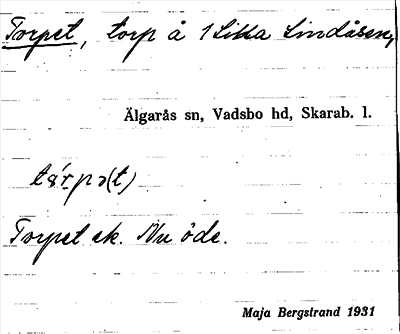 Torpet, torp å 1 Lilla Lindåsen,
Älgarås sn, Vadsbo hd, Skarab. l.
tárpə(t)
Torpet ek. Nu öde.
Maja Bergstrand 1931